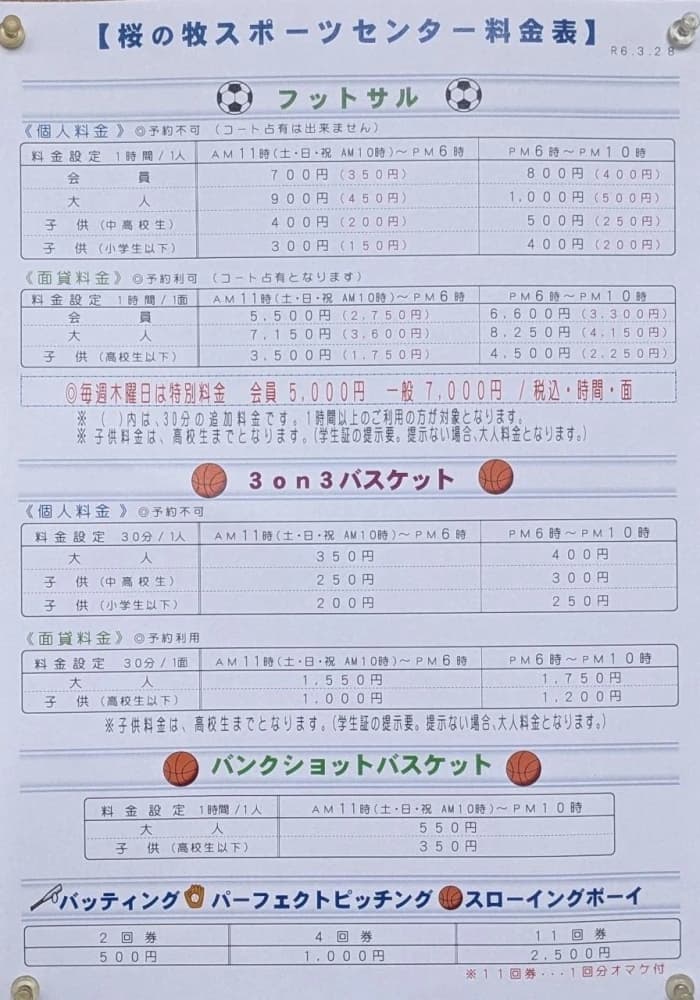 【桜の牧スポーツセンター料金表】
R6.3.28
フットサル
《個人料金》◎予約不可 (コート占有は出来ません)
料金設定 1時間/1人 AM11時(土・日・祝 AM10時)~PM6時 PM6時~PM10時
会 員 700円(350円) 800円(400円)
大 人 900円(450円) 1,000円(500円)
子 供(中高校生) 400円(200円) 500円(250円)
子 供(小学生以下) 300円(150円) 400円(200円)
《面貸料金》◎予約利可 (コート占有となります)
料金設定 1時間/1面 AM11時(土・日・祝 AM10時)~PM6時 PM6時~PM10時
会 員 5,500円(2,750円) 6,600円(3,300円)
大 人 7,150円(3,600円) 8,250円(4,150円)
子 供(高校生以下) 3,500円(1,750円) 4,500円(2,250円)
◎毎週木曜日は特別料金 会員 5,000円 一般 7,000円 /税込・時間・面
※ ( )内は、30分の追加料金です。1時間以上のご利用の方が対象となります。
※ 子供料金は、高校生までとなります。(学生証の提示要。提示ない場合、大人料金となります。)
3on3バスケット
《個人料金》◎予約不可
料金設定 30分/1人 AM11時(土・日・祝 AM10時)~PM6時 PM6時~PM10時
大 人 350円 400円
子 供(中高校生) 250円 300円
子 供(小学生以下) 200円 250円
《面貸料金》◎予約利用
料金設定 30分/1面 AM11時(土・日・祝 AM10時)~PM6時 PM6時~PM10時
大 人 1,550円 1,750円
子 供(高校生以下) 1,000円 1,200円
※子供料金は、高校生までとなります。(学生証の提示要。提示ない場合、大人料金となります。)
バンクショットバスケット
料金設定 1時間/1人 AM11時(土・日・祝 AM10時)~PM10時
大 人 550円
子 供(高校生以下) 350円
バッティング パーフェクトピッチング スローイングボーイ
2回券 4回券 11回券
500円 1,000円 2,500円
※11回券・・・1回分オマケ付